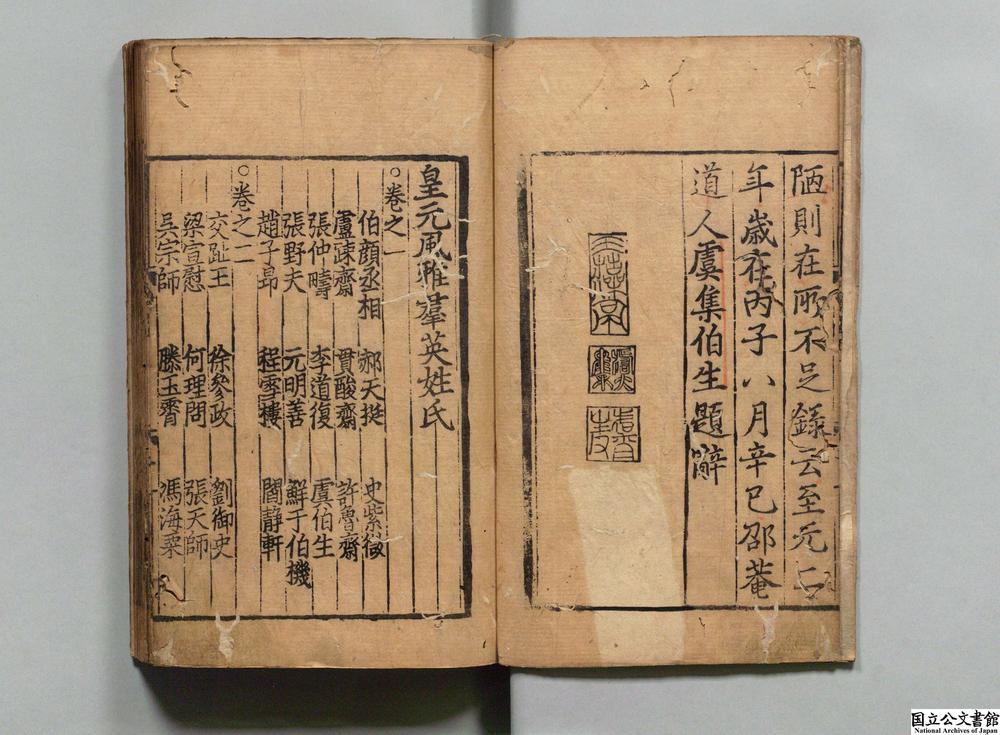 陋則在所不足錄云至元二
年歲在丙子八月辛巳邵菴
道人虞集伯生題辭
皇元風雅羣英姓氏
○卷之一
伯顏丞相 郝天挺 史紫微
盧踈齋 貫酸齋 許魯齋
張仲疇 李道復 虞伯生
張野夫 元明善 鮮于伯機
趙子昂 程雪樓 閻靜軒
○卷之二
交趾王 徐參政 劉御史
梁宣慰 何理問 張天師
吳宗師 滕玉霄 馮海粟
国立公文書館
National Archives of Japan